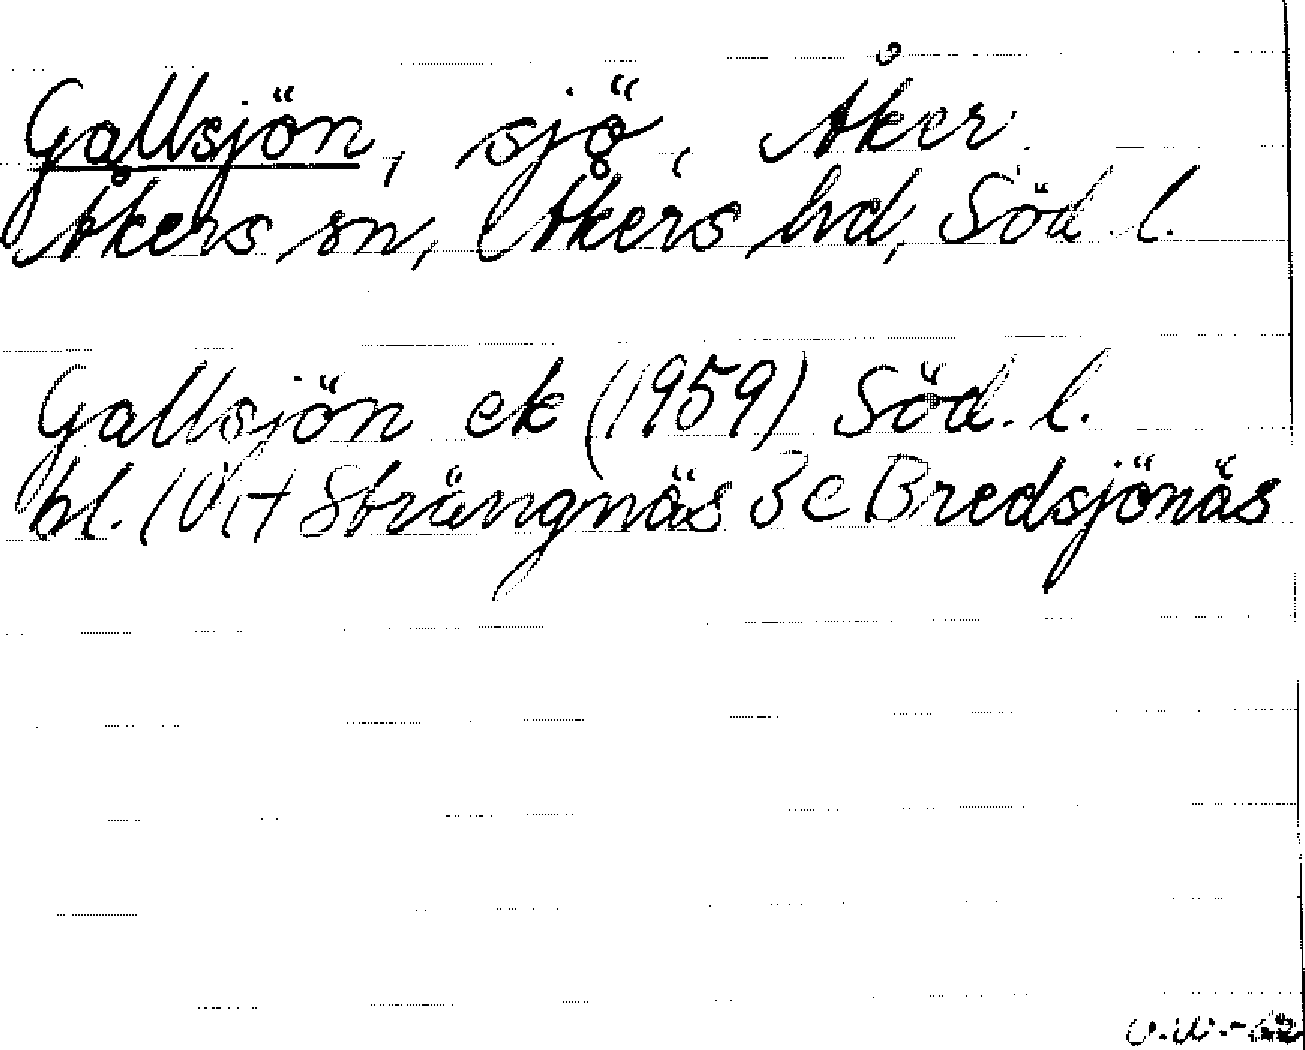 Gallsjön, sjö, Åker
Åkers sn, Åkers hd, Söd. l.
Gallsjön ek (1959) Söd. l.
bl. 10H Strängnäs 3c Bredsjönäs